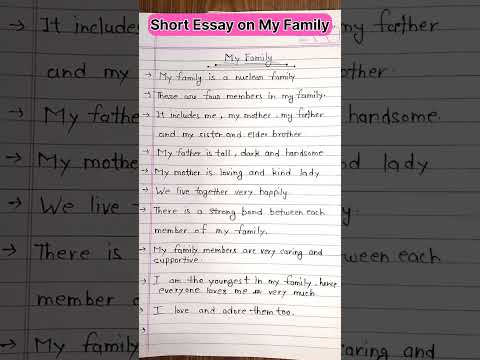 Short Essay on My Family
My Family
→ My family is a nuclear family
→ These are four members in my family.
→ It includes me, my mother, my farther
and my sister and elder brother
→ My father is tall, dark and handsome
→ My mother is loving and kind lady
→ We live together very happily
→ There is a strong bond between each
member of my family.
→ My family members are very caring and
supportive.
→ I am the youngest in my family, hence
everyone loves me very much
→ I love and adore them too.
→
→ It includes
and my
→ My fath
→ My moth
→ We live t
→ There is
member
→ My family
my farther
brother
handsome.
lady
each
caring and